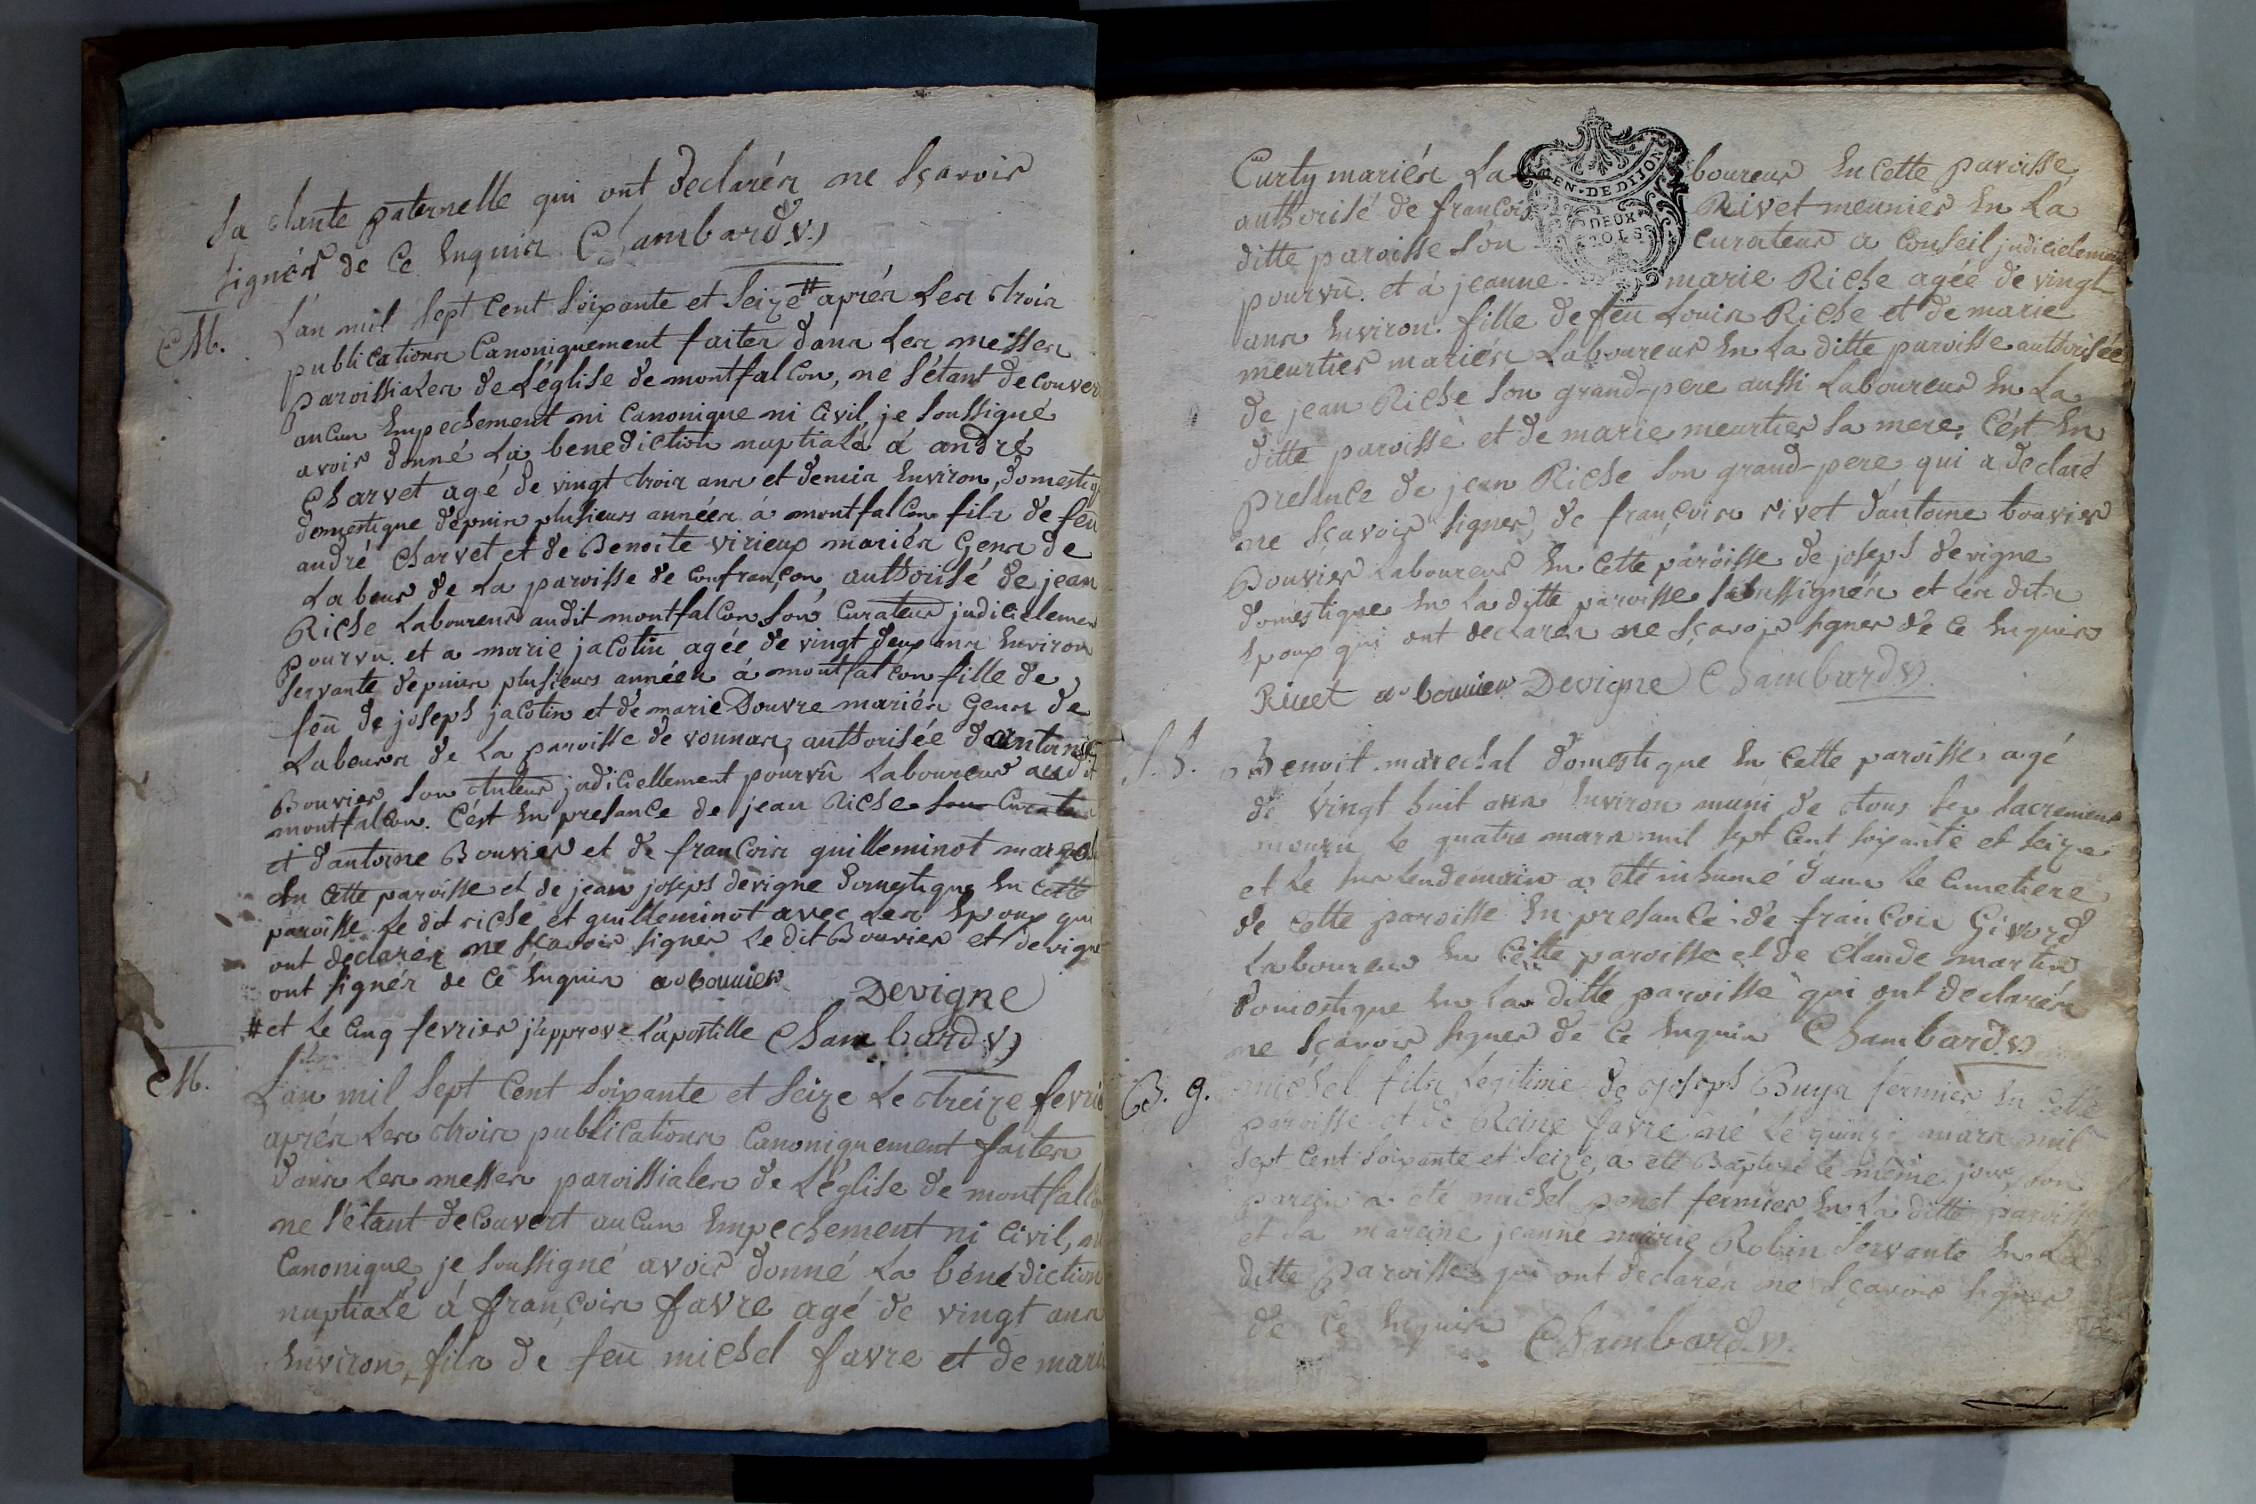 sa tante paternelle qui ont declarés ne sçavoir
signér de ce enquis Chambard.v.
M.
L'an mil sept cent soixante et seize # aprés les trois
publications Canoniquement faites dans les messes
paroissiales de L'église de montfalcon, ne s'étant decouver
aucun empechement ni canonique ni civil, je soussigné
avoir donné La benediction nuptiale á andré
Charvet agé de vingt trois ans et demis environ, domestiq
domestique depuis plusieurs années á montfalcon fils de feû
andré Charvet et de Benoite virieux mariés Gens de
Labeur de La paroisse de confrançon, authorisé de jean
Riche Laboureur audit montfalcon son Curateur judicielemen
pourvu. et a marie jacotin agée de vingt deux ans environ
servante depuis plusieurs années á montfalcon fille de
feû de joseph jacotin et de marie Douvre mariés Gens de
Labeurs de La paroisse de vonnas, authorisée d'antoine
Bouvier son tuteur judiciellement pourvû Laboureur audit
montfalcon. C'ést en presance de jean Riche son Curateur
et d'antoine Bouvier et de françois guilleminot
en cette paroisse et de jean joseph devigne domestique en cette
paroisse Le dit riche et guilleminot avec Les epoux qui
ont declarés ne sçavoir signer Le dit Bouvier et devigne
ont signér de ce enquis a bouvier Devigne
# et Le cinq fevrier j'approve L'apostille Chambard.v.
M.
L'an mil sept cent soixante et seize Le treize fevri
aprés Les trois publications Canoniquement faites
dans Les messes paroissiales de L'église de montfalco
ne s'étant decouvert aucun empechement ni civil, ni
Canonique, je soussigné avoir donné La bénédiction
nuptiale á françois favre agé de vingt ans
environ, fils de feû michel favre et de marie
Curty mariés Laboureur en cette paroisse
GEN·DE DIJON
DEUX
SOLS
authorisé de françois Rivet meunier en La
ditte paroisse son curateur a conseil judicielement
pourvû. et á jeanne marie Riche agée de vingt
ans environ. fille de feû Louis Riche et de marie
meurtier mariés Laboureur en La ditte paroisse authorisée
de jean Riche son grand-pere aussi Laboureur en La
ditte paroisse et de marie meurtier sa mere. C'ést en
presance de jean Riche son grand-pere qui a declaré
ne sçavoir signer, de françois rivet d'antoine bouvier
Bouvier Laboureur en cette paroisse de joseph devigne
domestique en La ditte paroisse soussignés et Les dits
epoux qui ont declarés ne sçavoir signer de ce enquis
Rivet a bouvier Devigne Chambard.v.
S. Benoit marechal domestique en cette paroisse agé
de vingt huit ans environ muni de tous les sacremens
mouru le quatre mars mil sept cent soixante et seize
et le surlendemain a été inhumé dans le cimetiere
de cette paroisse en presance de françois Givord
Laboureur en cette paroisse et de Claude martin
domestique en La ditte paroisse qui ont declarés
ne sçavoir signer de ce enquis Chambard.v.
B. g. michel fils Legitime de joseph Buya fermier en cette
paroisse et de Reine favre né le quinze mars mil
sept cent soixante et seize, a été Baptisé le même jour, son
parein a été michel penet fermier en La ditte paroisse
et sa mareine jeanne marie Robin servante en La
ditte paroisse qui ont declarés ne sçavoir signer
de ce enquis Chambard.v.